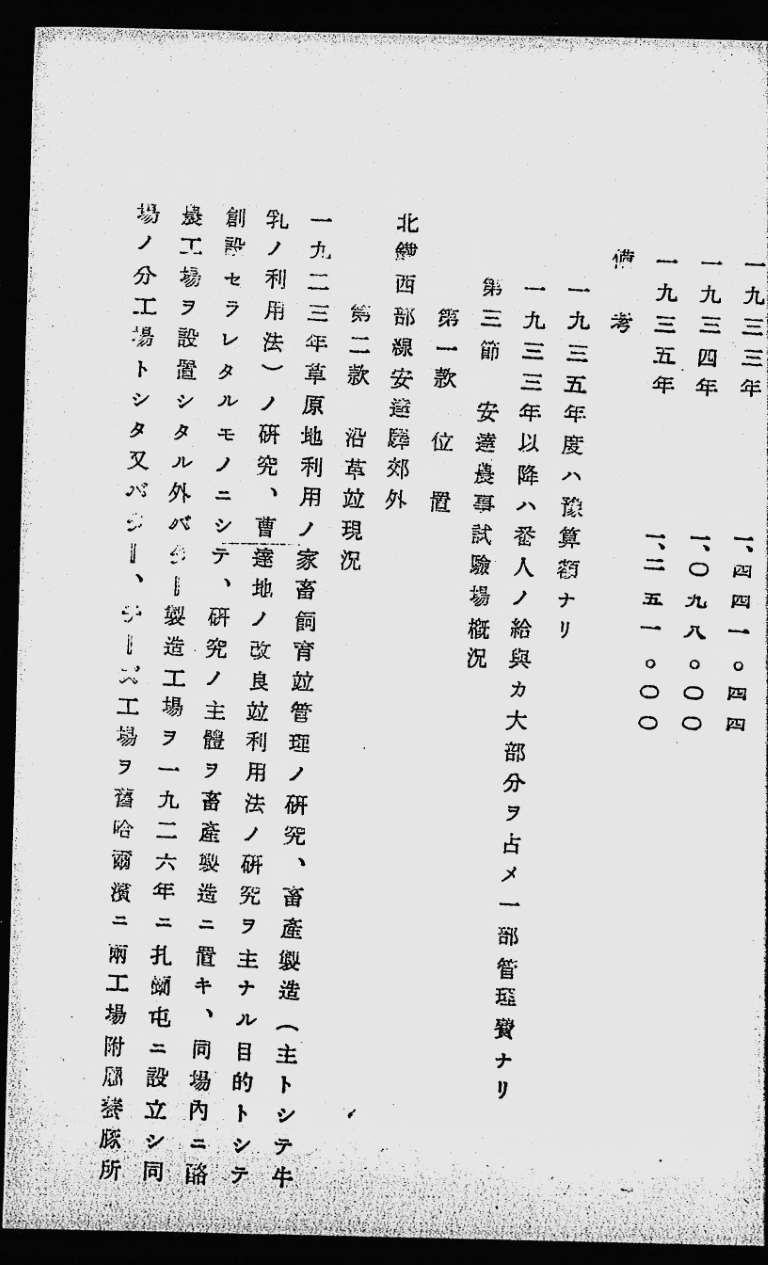 一九三三年　一、四四一。四四
一九三四年　一、〇九八。〇〇
一九三五年　一、二五一。〇〇
備考
一九三五年度ハ豫算額ナリ
一九三三年以降ハ番人ノ給與カ大部分ヲ占メ一部管理費ナリ
第三節　安達農事試驗場槪況
第一款　位置
北鐵西部線安達驛郊外
第二款　沿革竝現況
一九二三年草原地利用ノ家畜飼育竝管理ノ研究、畜產製造（主トシテ牛
乳ノ利用法）ノ研究、曹達地ノ改良竝利用法ノ研究ヲ主ナル目的トシテ
創設セラレタルモノニシテ、研究ノ主體ヲ畜產製造ニ置キ、同場內ニ酪
農工場ヲ設置シタル外バター製造工場ヲ一九二六年ニ扎蘭屯ニ設立シ同
場ノ分工場トシタ又バター、チーズ工場ヲ舊哈爾濱ニ兩工場附屬養豚所